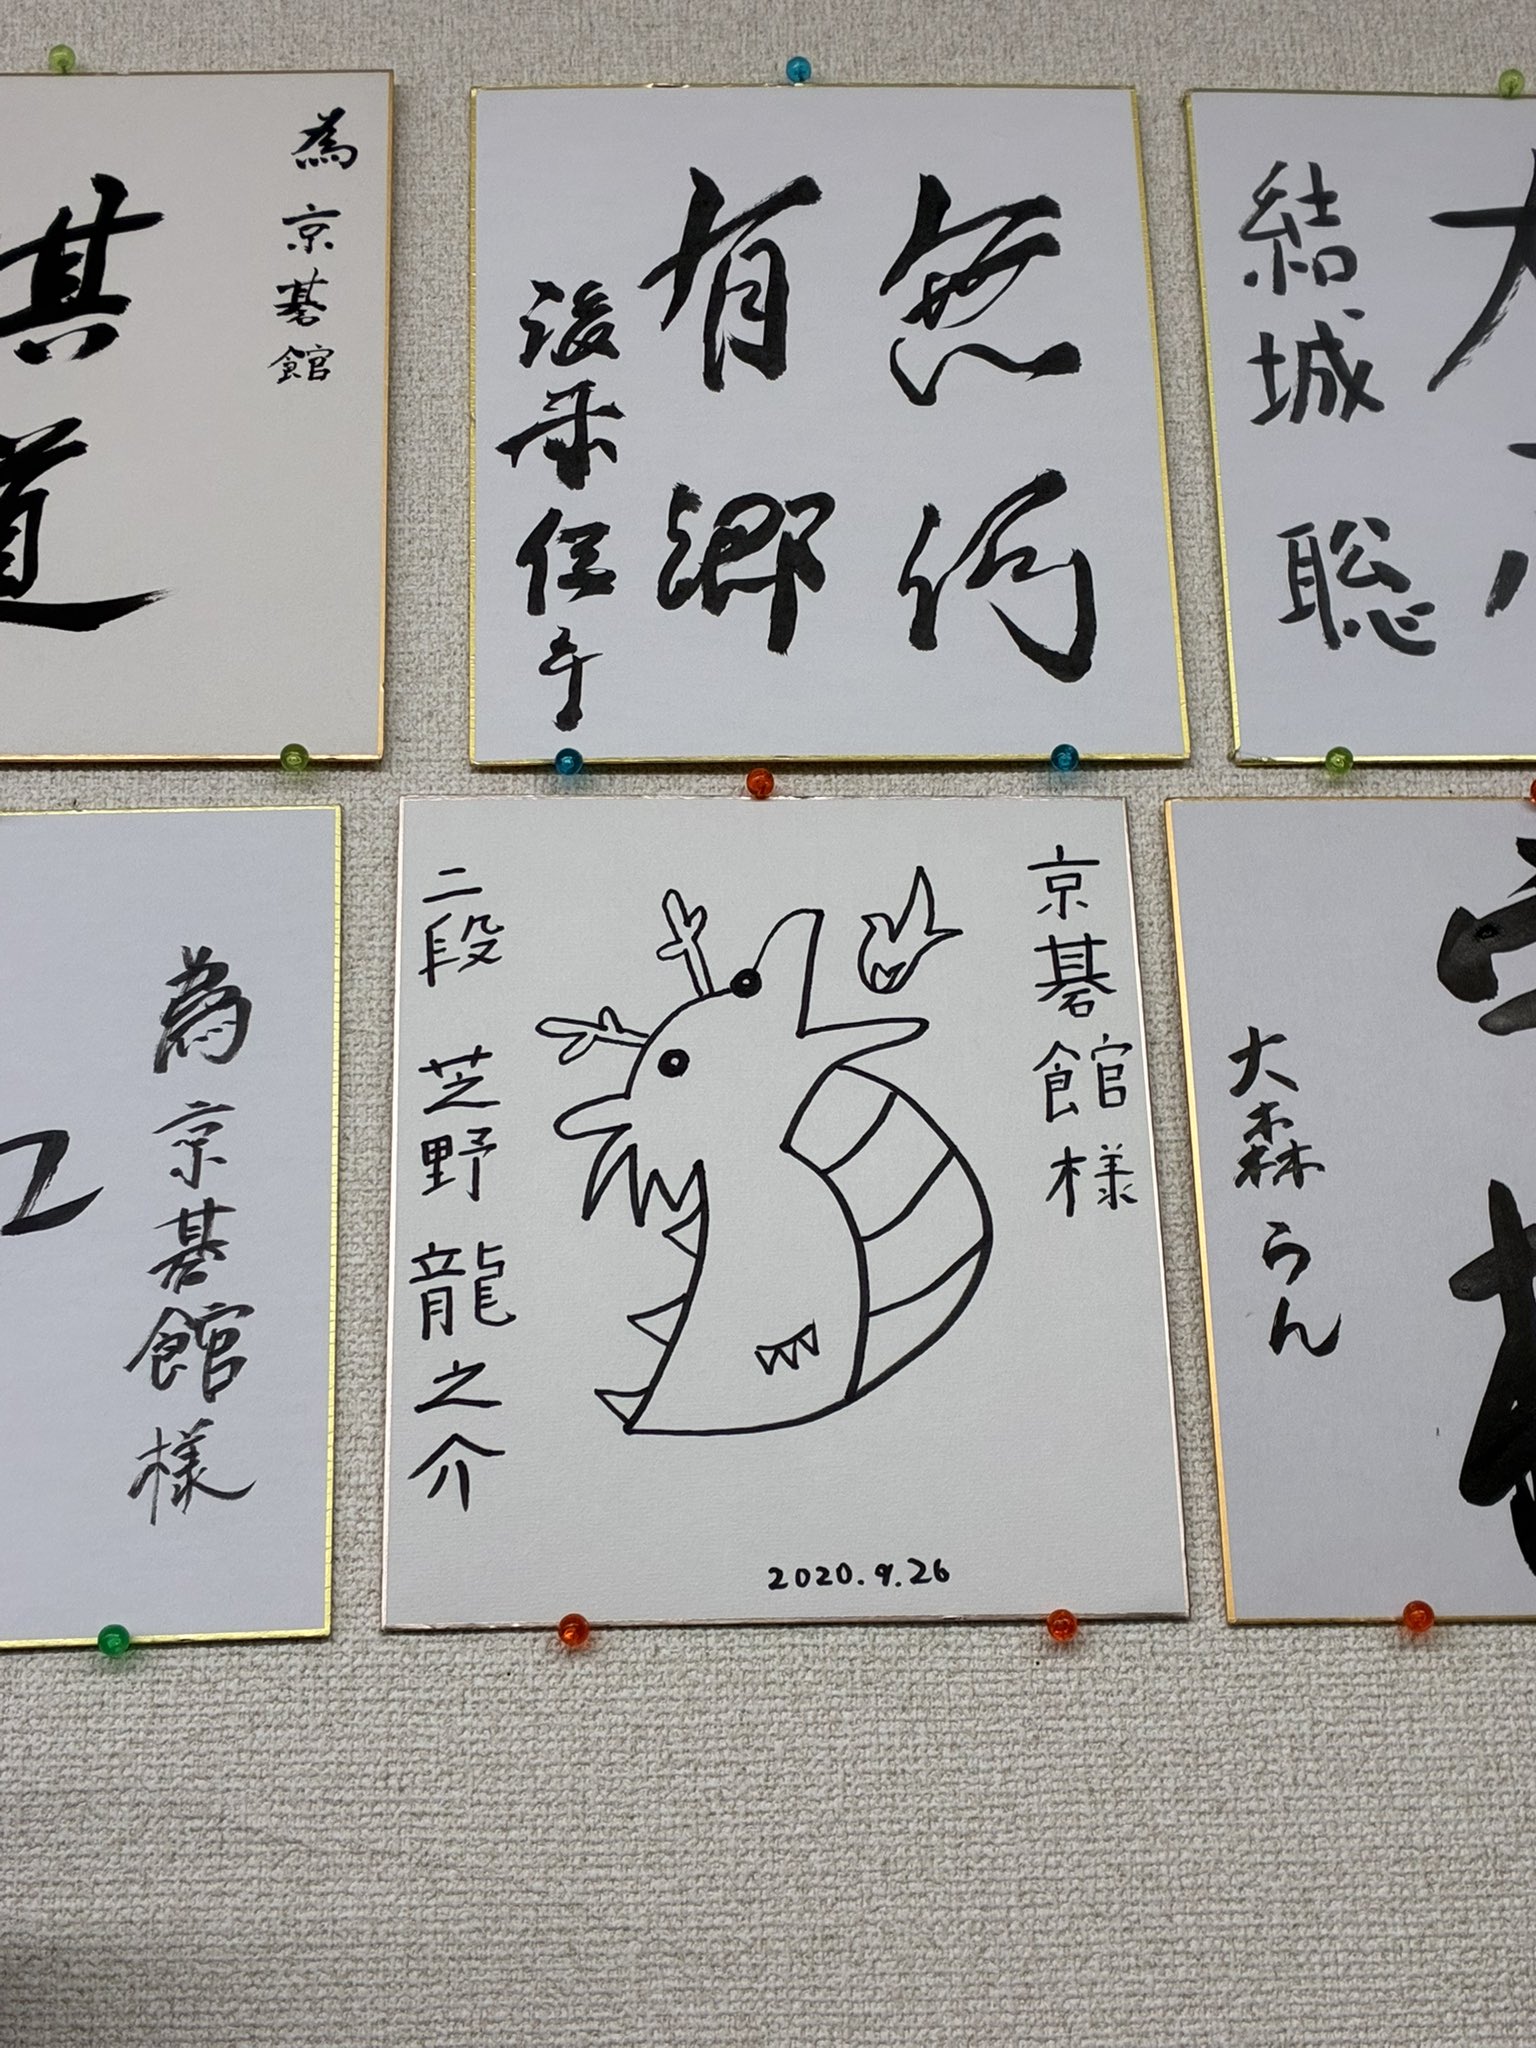 為 京碁館
棋道
無何
有郷
後藤俊午
結城 聡
為 京碁館様
京碁館様
二段 芝野 龍之介
2020.9.26
大森らん